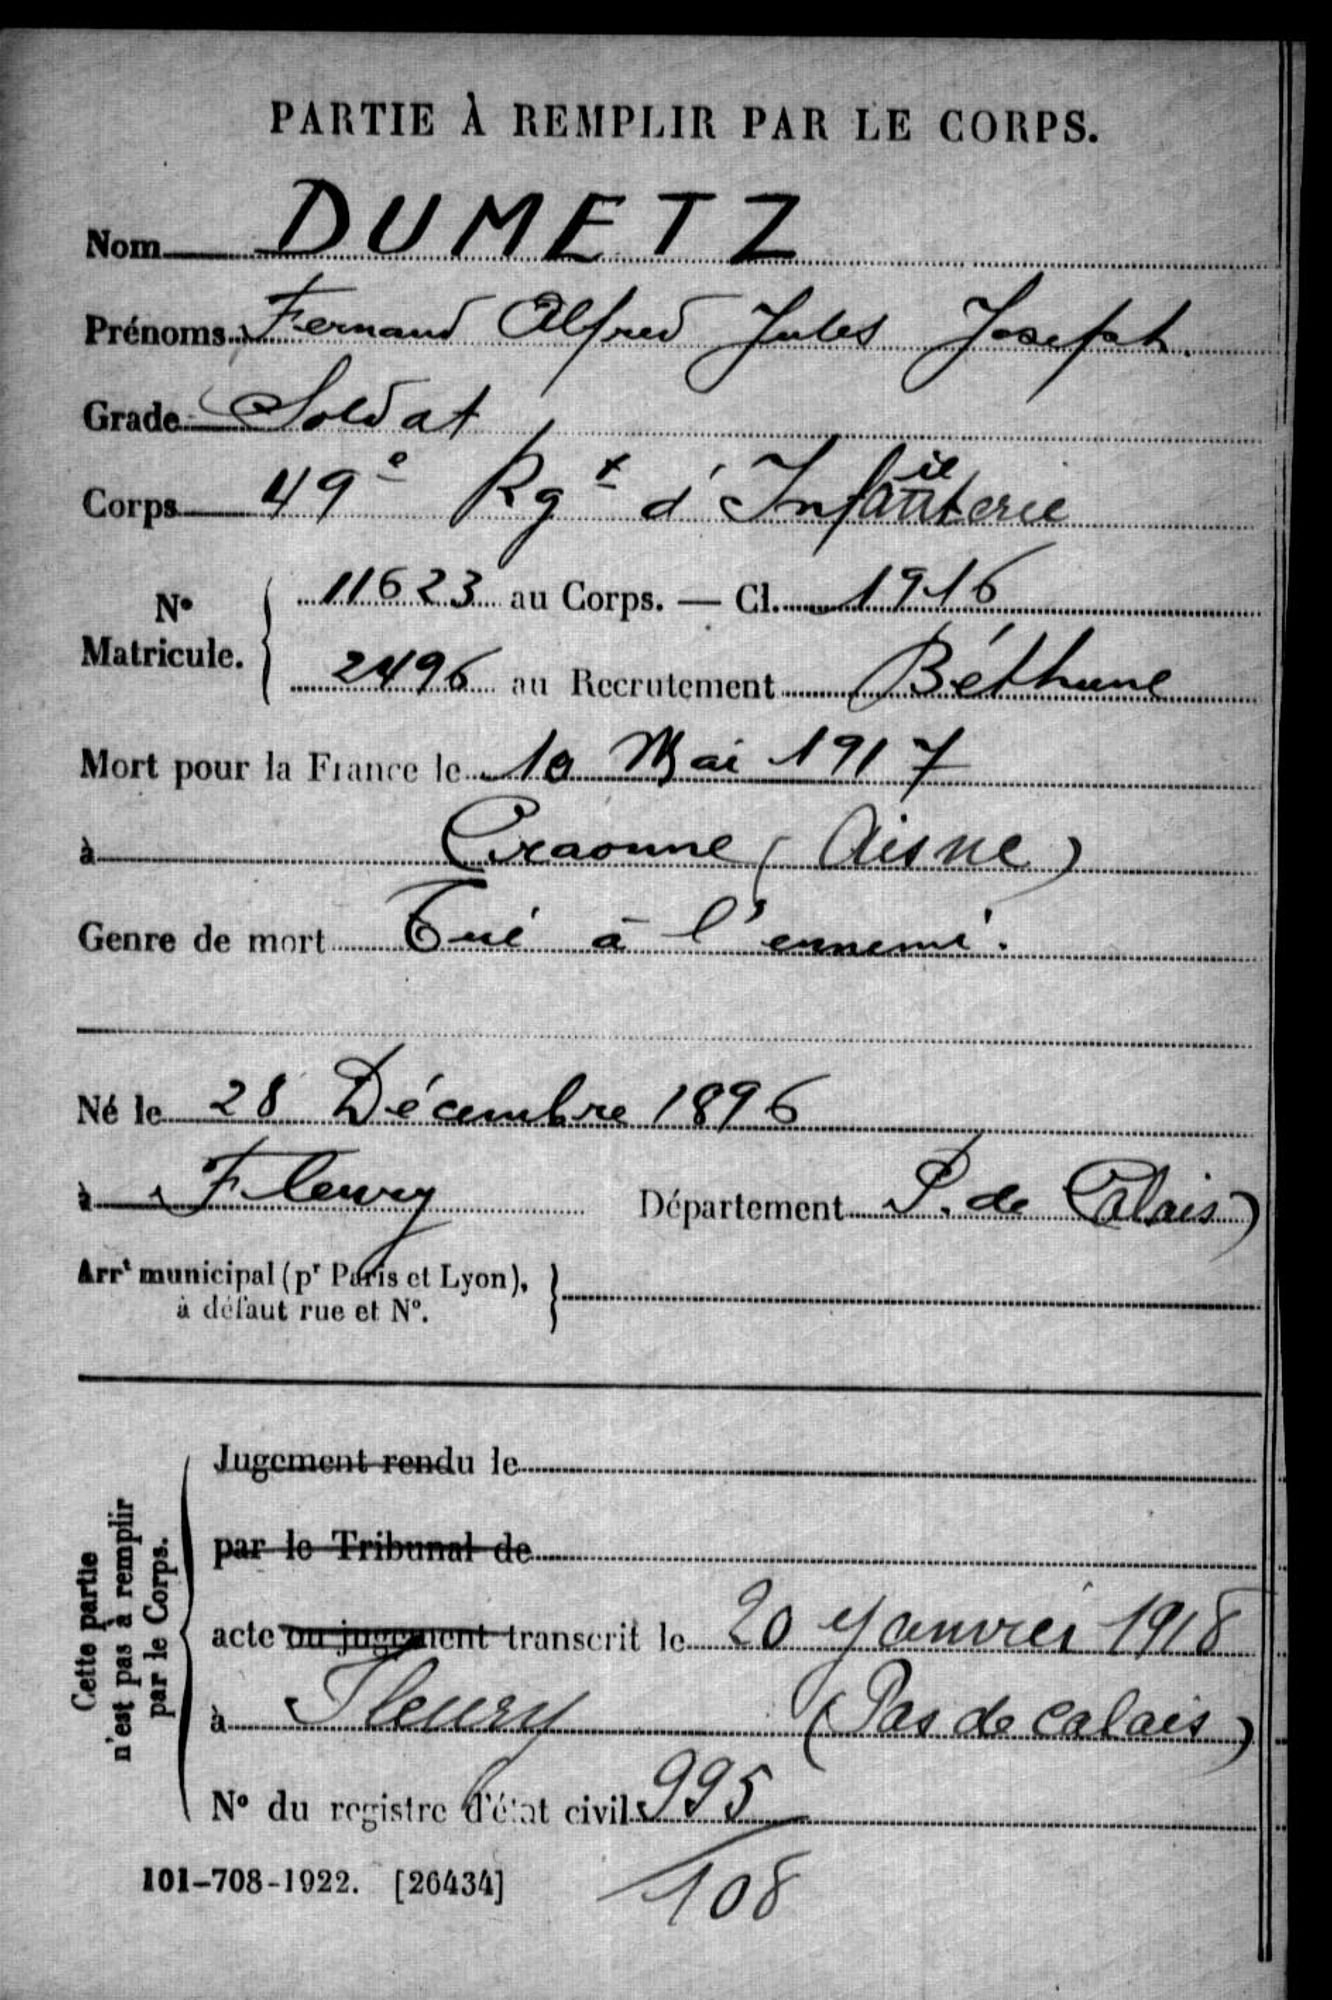 PARTIE À REMPLIR PAR LE CORPS.
Nom DUMETZ
Prénoms Fernand Alfred Jules Joseph
Grade Soldat
Corps 49e Rgt d'Infanterie
N° Matricule. 11623 au Corps. — Cl. 1916
2496 au Recrutement Béthune
Mort pour la France le 10 Mai 1917
à Craonne (Aisne)
Genre de mort Tué à l'ennemi.
Né le 28 Décembre 1896
à Fleury Département P. de Calais)
Arrt municipal (pr Paris et Lyon),
à défaut rue et N°.
Cette partie
n'est pas à remplir
par le Corps.
Jugement rendu le
par le Tribunal de
acte ou jugement transcrit le 20 Janvier 1918
à Fleury (Pas de Calais)
N° du registre d'état civil 995
101-708-1922. [26434]
108